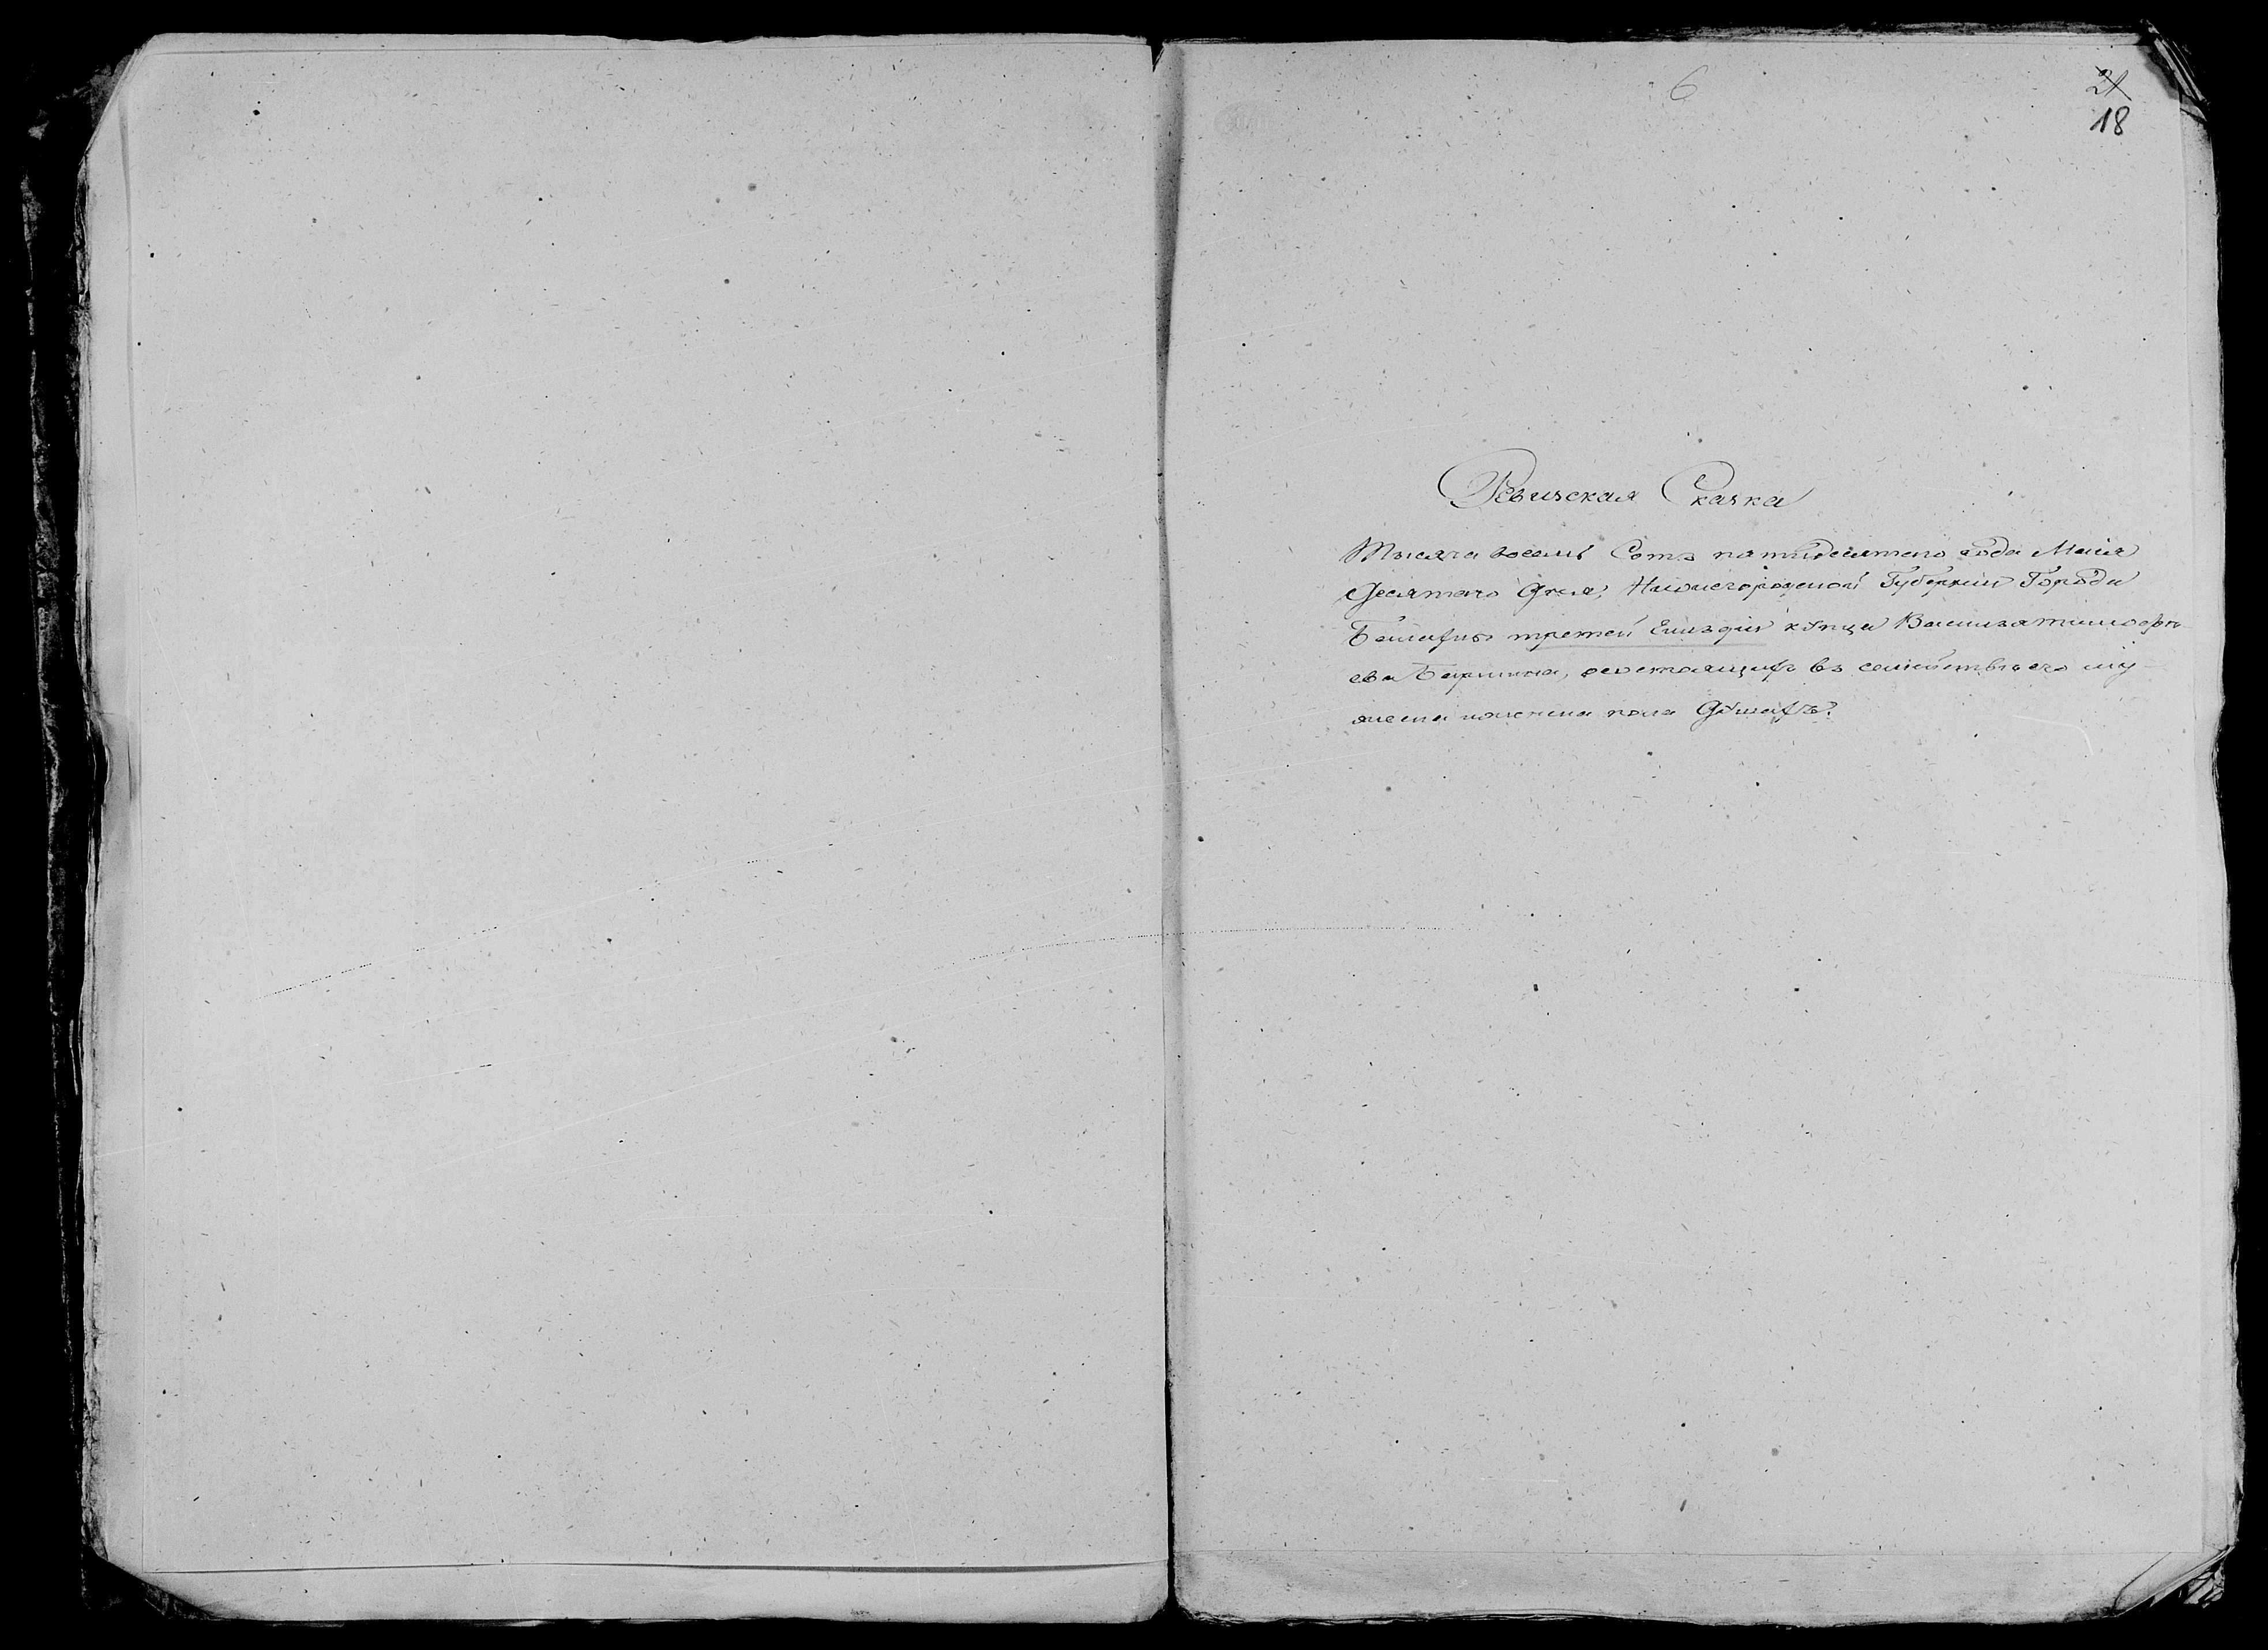 6
21
18
Ревизская Сказка
Тысяча восемь Сотъ пятидесятаго года Маія
Десятаго Дня, Нижегородской Губерніи Города
Балахны третей Гильдіи купца Василья тимофѣ-
ева состоящихъ въ семействѣ его му-
жеска и женска пола Душахъ.